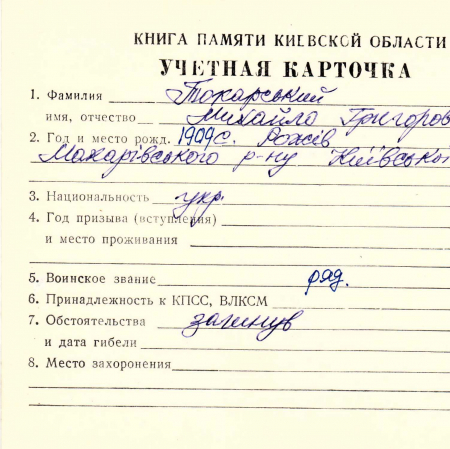 КНИГА ПАМЯТИ КИЕВСКОЙ ОБЛАСТИ
УЧЕТНАЯ КАРТОЧКА
1. Фамилия Токарський
имя, отчество Михайло Григоров
2. Год и место рожд. 1909 с. Рожів
Макарівського р-ну Київсько
3. Национальность укр.
4. Год призыва (вступления)
и место проживания
5. Воинское звание ряд.
6. Принадлежность к КПСС, ВЛКСМ
7. Обстоятельства загинув
и дата гибели
8. Место захоронения